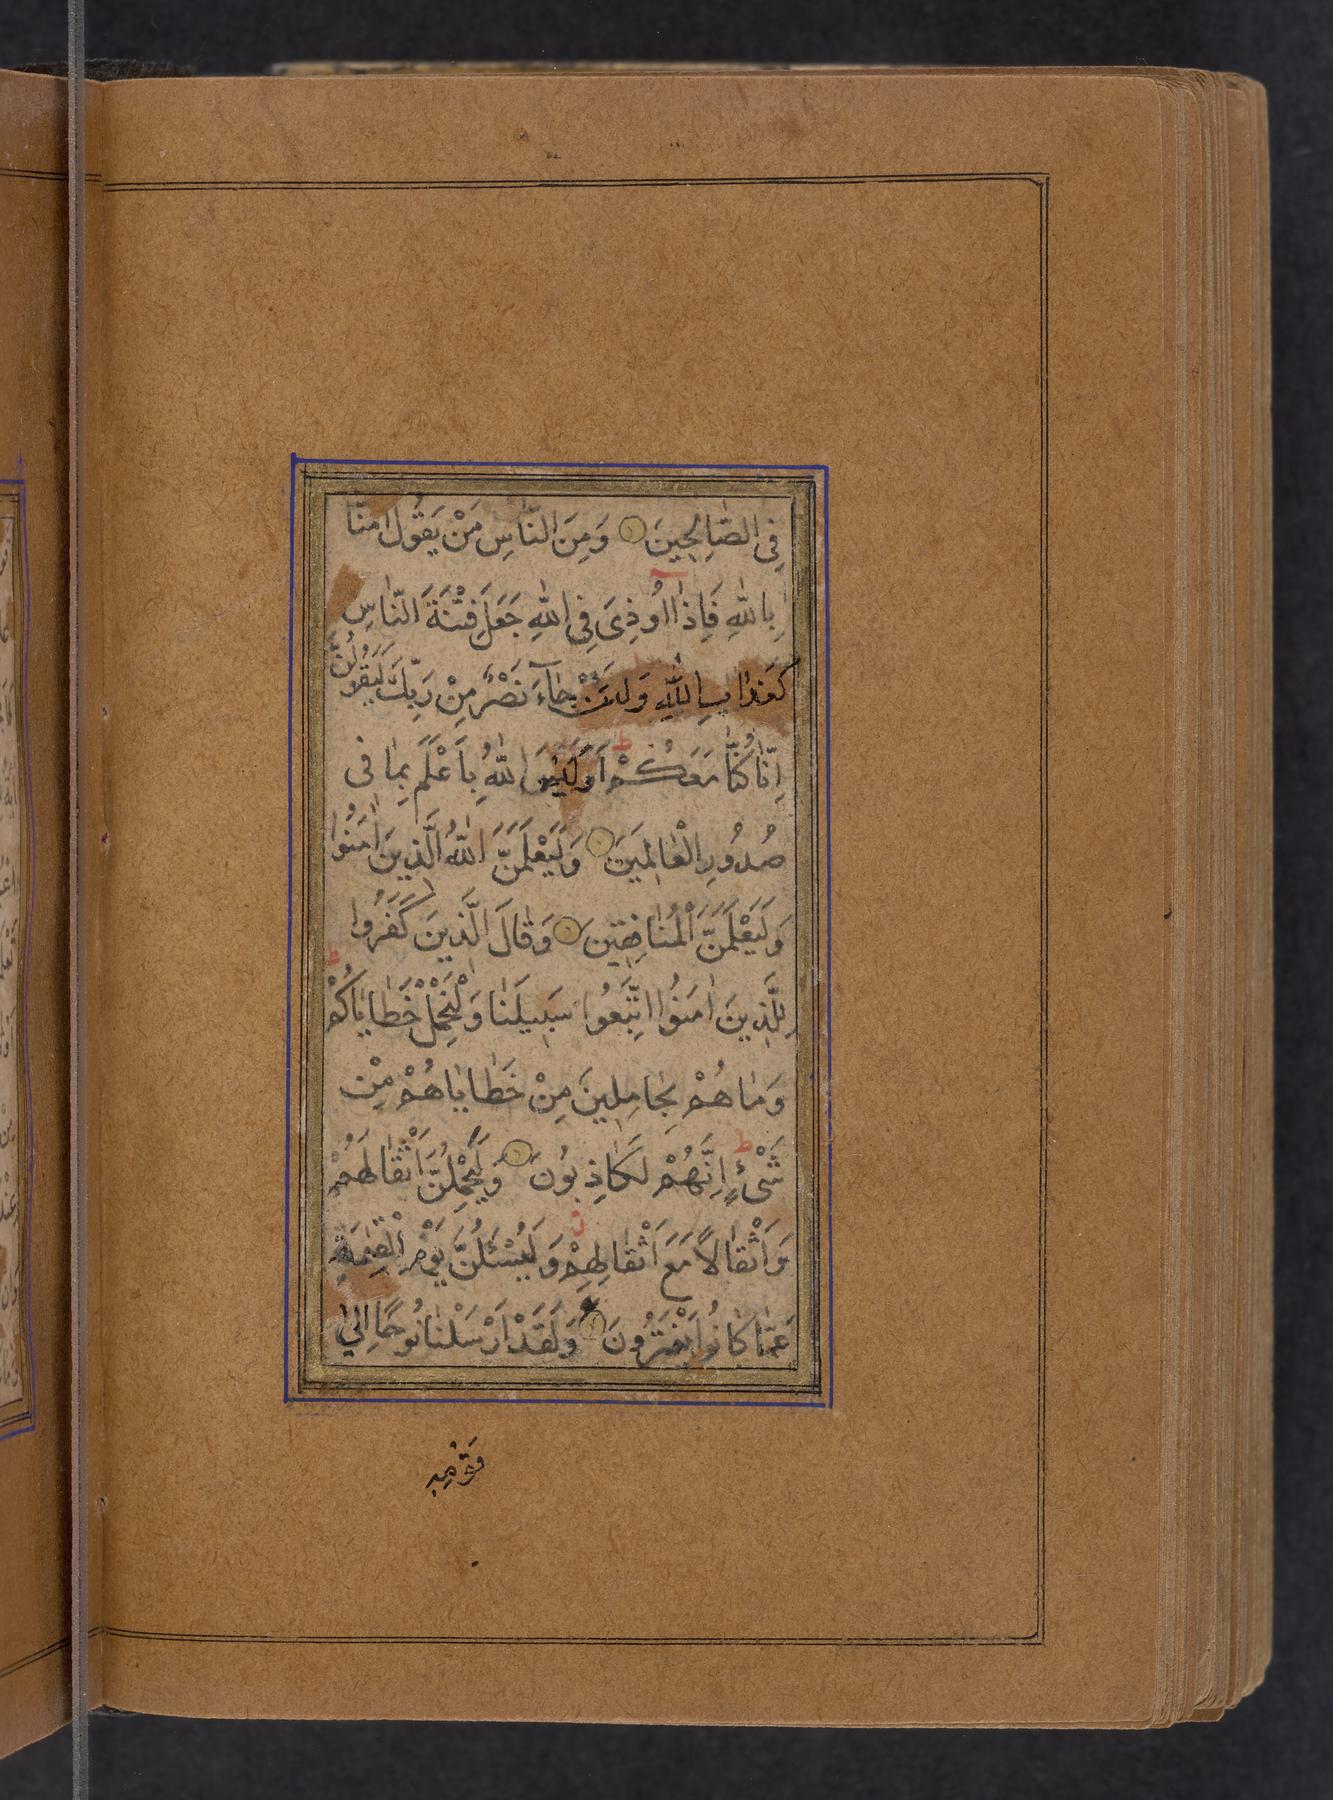 فِى الصَّالِحِينَ وَمِنَ النَّاسِ مَنْ يَقُولُ اٰمَنَّا
بِاللّٰهِ فَاِذَا اُوذِىَ فِى اللّٰهِ جَعَلَ فِتْنَةَ النَّاسِ
كَعَذَابِ اللّٰهِ وَلَئِنْ جَآءَ نَصْرٌ مِنْ رَبِّكَ لَيَقُولُنَّ
اِنَّا كُنَّا مَعَكُمْ اَوَلَيْسَ اللّٰهُ بِاَعْلَمَ بِمَا فِى
صُدُورِ الْعَالَمِينَ وَلَيَعْلَمَنَّ اللّٰهُ الَّذِينَ اٰمَنُوا
وَلَيَعْلَمَنَّ الْمُنَافِقِينَ وَقَالَ الَّذِينَ كَفَرُوا
لِلَّذِينَ اٰمَنُوا اتَّبِعُوا سَبِيلَنَا وَلْنَحْمِلْ خَطَايَاكُمْ
وَمَا هُمْ بِحَامِلِينَ مِنْ خَطَايَاهُمْ مِنْ
شَىْءٍ اِنَّهُمْ لَكَاذِبُونَ وَلَيَحْمِلُنَّ اَثْقَالَهُمْ
وَاَثْقَالًا مَعَ اَثْقَالِهِمْ وَلَيُسْئَلُنَّ يَوْمَ الْقِيٰمَةِ
عَمَّا كَانُوا يَفْتَرُونَ وَلَقَدْ اَرْسَلْنَا نُوحًا اِلىٰ
قَوْمِهِ